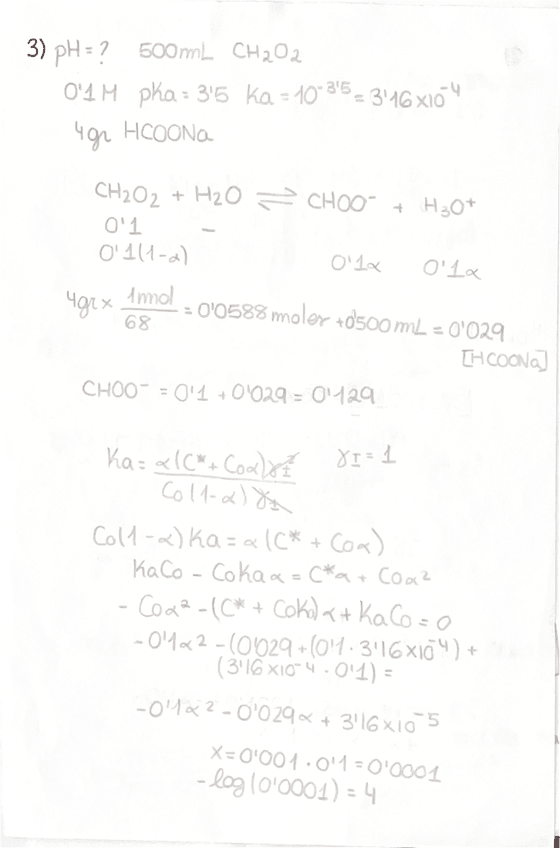 3) pH = ? 500mL CH2O2
0'1M pKa = 3'5 Ka = 10^-3'5 = 3'16×10^-4
4gr HCOONa
CH2O2 + H2O ⇌ CHOO^- + H3O^+
0'1 –
0'1(1-α) 0'1α 0'1α
4gr × 1mol/68 = 0'0588 moler + 0'500 mL = 0'029
[HCOONa]
CHOO^- = 0'1 + 0'029 = 0'129
Ka = α(C* + Coα)γI^2 / Co(1-α)γI γI = 1
Co(1-α)Ka = α(C* + Coα)
KaCo - CoKaα = C*α + Coα^2
- Coα^2 - (C* + CoKa)α + KaCo = 0
-0'1α^2 - (0'029 + (0'1 · 3'16×10^-4) +
(3'16×10^-4 · 0'1) =
-0'1α^2 - 0'029α + 3'16×10^-5
x = 0'001 · 0'1 = 0'0001
-log(0'0001) = 4